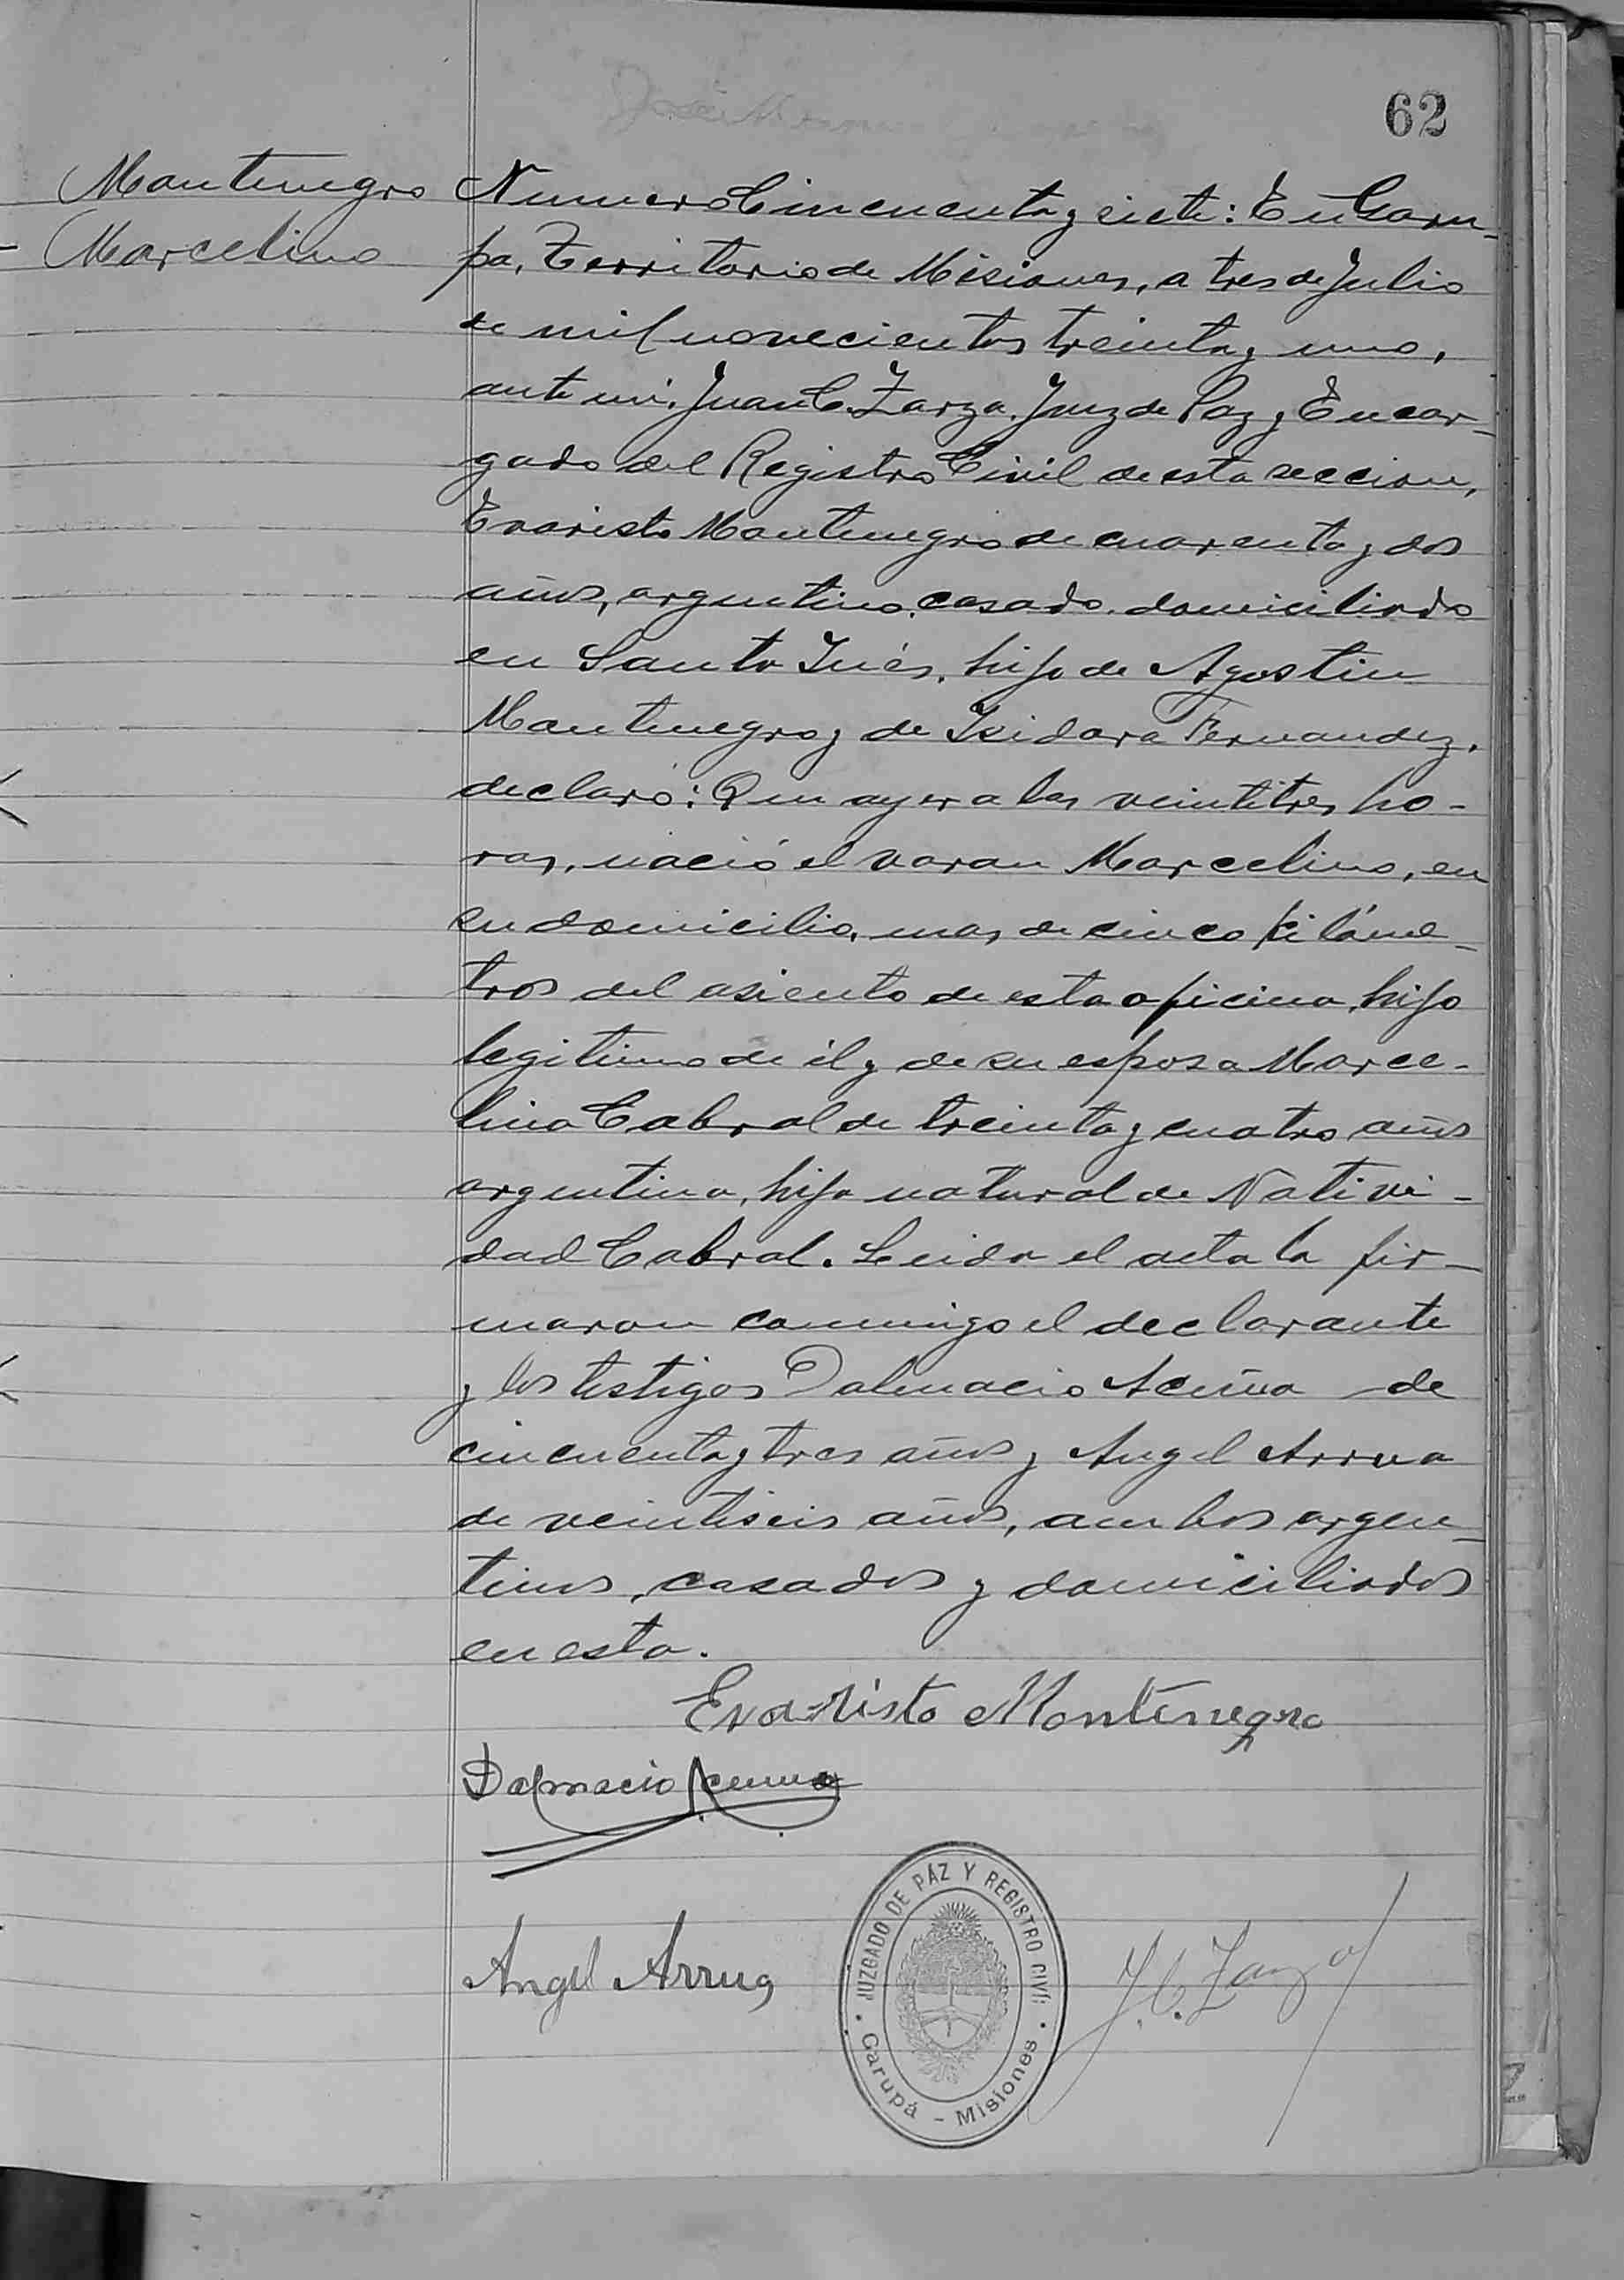 62
Montenegro
Marcelino
Numero Cincuenta y siete: En Garu-
pa, Territorio de Misiones, a tres de Julio
de mil novecientos treinta y uno,
ante mi, Juan C. Zarza, Juez de Paz y Encar-
gado del Registro Civil de esta seccion,
Evaristo Montenegro de cuarenta y dos
años, argentino, casado, domiciliado
en Santa Inés, hijo de Agustin
Montenegro y de Isidora Fernandez,
declaró: Que ayer a las veintitres ho-
ras, nació el varon Marcelino, en
su domicilio, mas de cinco kilóme-
tros del asiento de esta oficina, hijo
legitimo de él y de su esposa Marce-
lina Cabral de treinta y cuatro años
argentina, hija natural de Nativi-
dad Cabral. Leida el acta la fir-
maron conmigo el declarante
y los testigos Dalmacio Acuña de
cincuenta y tres años y Angel Arrua
de veintiseis años, ambos argen-
tinos, casados y domiciliados
en esta.
Evaristo Montenegro
Dalmacio Acuña
Angel Arrua
J. C. Zarza
JUZGADO DE PÁZ Y REGISTRO CIVIL
Garupá - Misiones